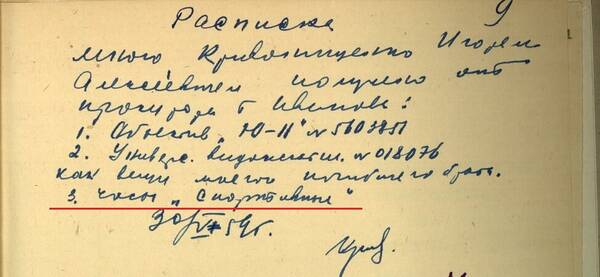 9
Расписка
мною Кривонищенко Игорем
Алексеевичем получено от
прокурора т Иванова:
1. Объектив „Ю-11" № 5603851
2. Универс. видоискател. № 018076
как вещи моего погибшего брата.
3. Часы „Спортивные"
30/VI 59г.
Крив.